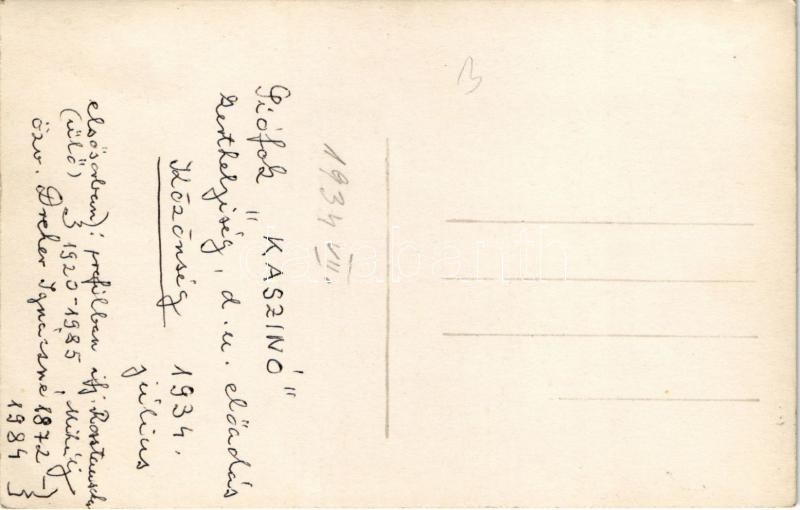 1934 VII.
Siófok "KASZINÓ"
kerthelyiség, d.u. előadás
Közönség 1934.
július
elsősorban): profilban ifj.
(ülő) } 1920-1985 Mihály
özv. Dreher Ignácné 1872-}
1984 }
B
darabanth